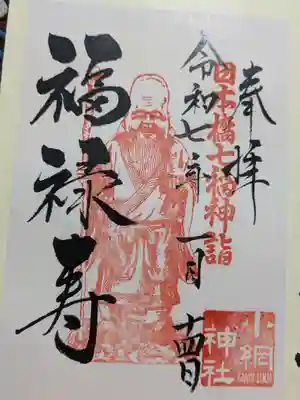 奉拝
日本橋七福神詣
令和七年一月十四日
福禄寿
小網神社